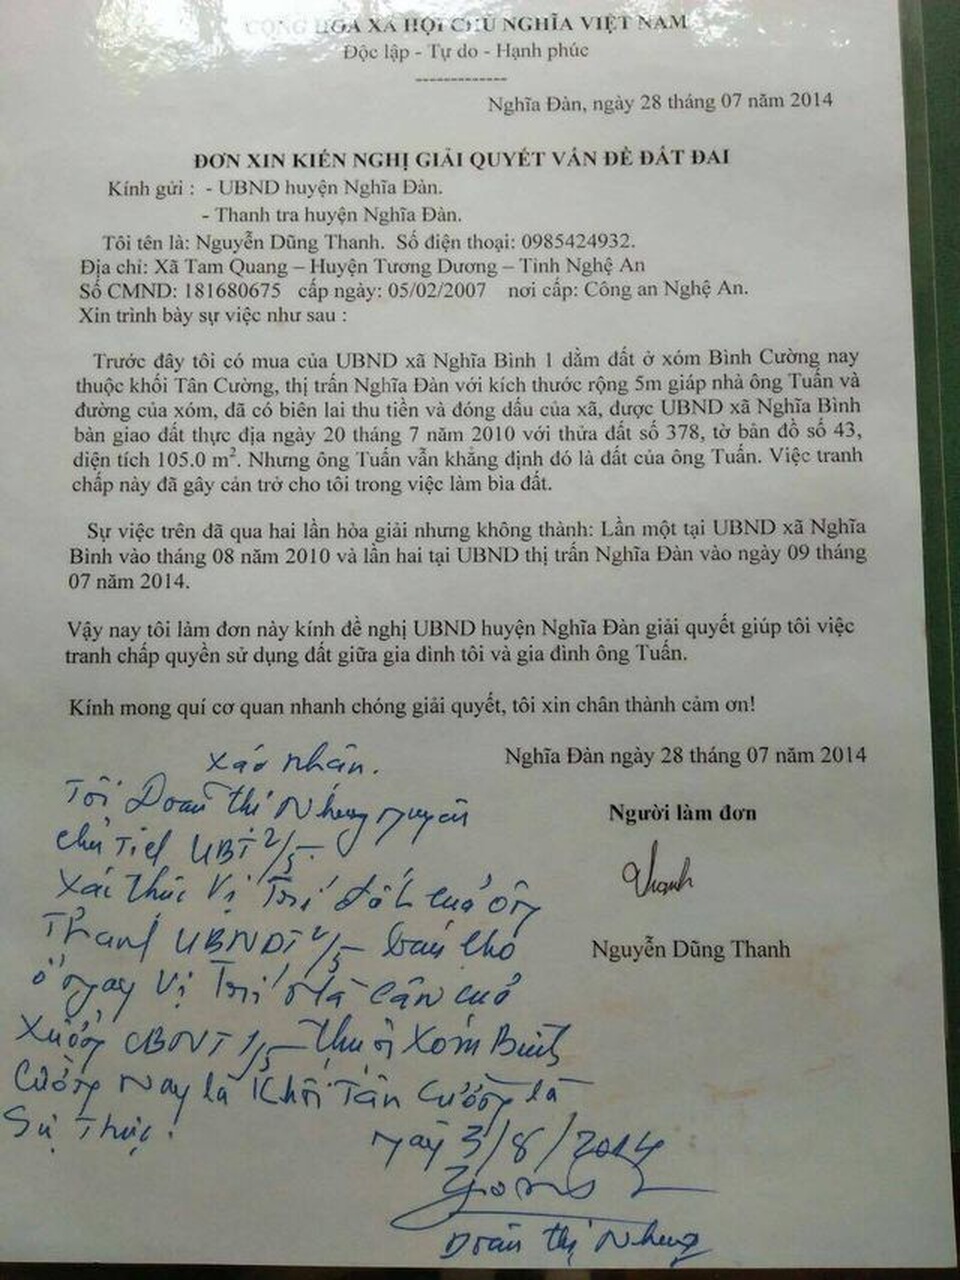 CỘNG HÒA XÃ HỘI CHỦ NGHĨA VIỆT NAM
Độc lập - Tự do - Hạnh phúc
-------------
Nghĩa Đàn, ngày 28 tháng 07 năm 2014
ĐƠN XIN KIẾN NGHỊ GIẢI QUYẾT VẤN ĐỀ ĐẤT ĐAI
Kính gửi : - UBND huyện Nghĩa Đàn.
- Thanh tra huyện Nghĩa Đàn.
Tôi tên là: Nguyễn Dũng Thanh. Số điện thoại: 0985424932.
Địa chỉ: Xã Tam Quang – Huyện Tương Dương – Tỉnh Nghệ An
Số CMND: 181680675 cấp ngày: 05/02/2007 nơi cấp: Công an Nghệ An.
Xin trình bày sự việc như sau :
Trước đây tôi có mua của UBND xã Nghĩa Bình 1 dằm đất ở xóm Bình Cường nay
thuộc khối Tân Cường, thị trấn Nghĩa Đàn với kích thước rộng 5m giáp nhà ông Tuấn và
đường của xóm, đã có biên lai thu tiền và đóng dấu của xã, được UBND xã Nghĩa Bình
bàn giao đất thực địa ngày 20 tháng 7 năm 2010 với thửa đất số 378, tờ bản đồ số 43,
diện tích 105.0 m². Nhưng ông Tuấn vẫn khẳng định đó là đất của ông Tuấn. Việc tranh
chấp này đã gây cản trở cho tôi trong việc làm bìa đất.
Sự việc trên đã qua hai lần hòa giải nhưng không thành: Lần một tại UBND xã Nghĩa
Bình vào tháng 08 năm 2010 và lần hai tại UBND thị trấn Nghĩa Đàn vào ngày 09 tháng
07 năm 2014.
Vậy nay tôi làm đơn này kính đề nghị UBND huyện Nghĩa Đàn giải quyết giúp tôi việc
tranh chấp quyền sử dụng đất giữa gia đình tôi và gia đình ông Tuấn.
Kính mong quí cơ quan nhanh chóng giải quyết, tôi xin chân thành cảm ơn!
Nghĩa Đàn ngày 28 tháng 07 năm 2014
Người làm đơn
Thanh
Nguyễn Dũng Thanh
Xác nhận.
Tôi Doãn thị Nhung nguyên
chủ tịch UBT 2/5.
Xác thực Vị Trí đất của ông
Thanh UBNDT 2/5 bán cho
ở ngay Vị Trí nhà cân của
Xưởng CBNT 1/5 thuộc Xóm Bình
Cường Nay là Khối Tân Cường là
Sự Thực.
ngày 3/8/2014
Doãn thị Nhung